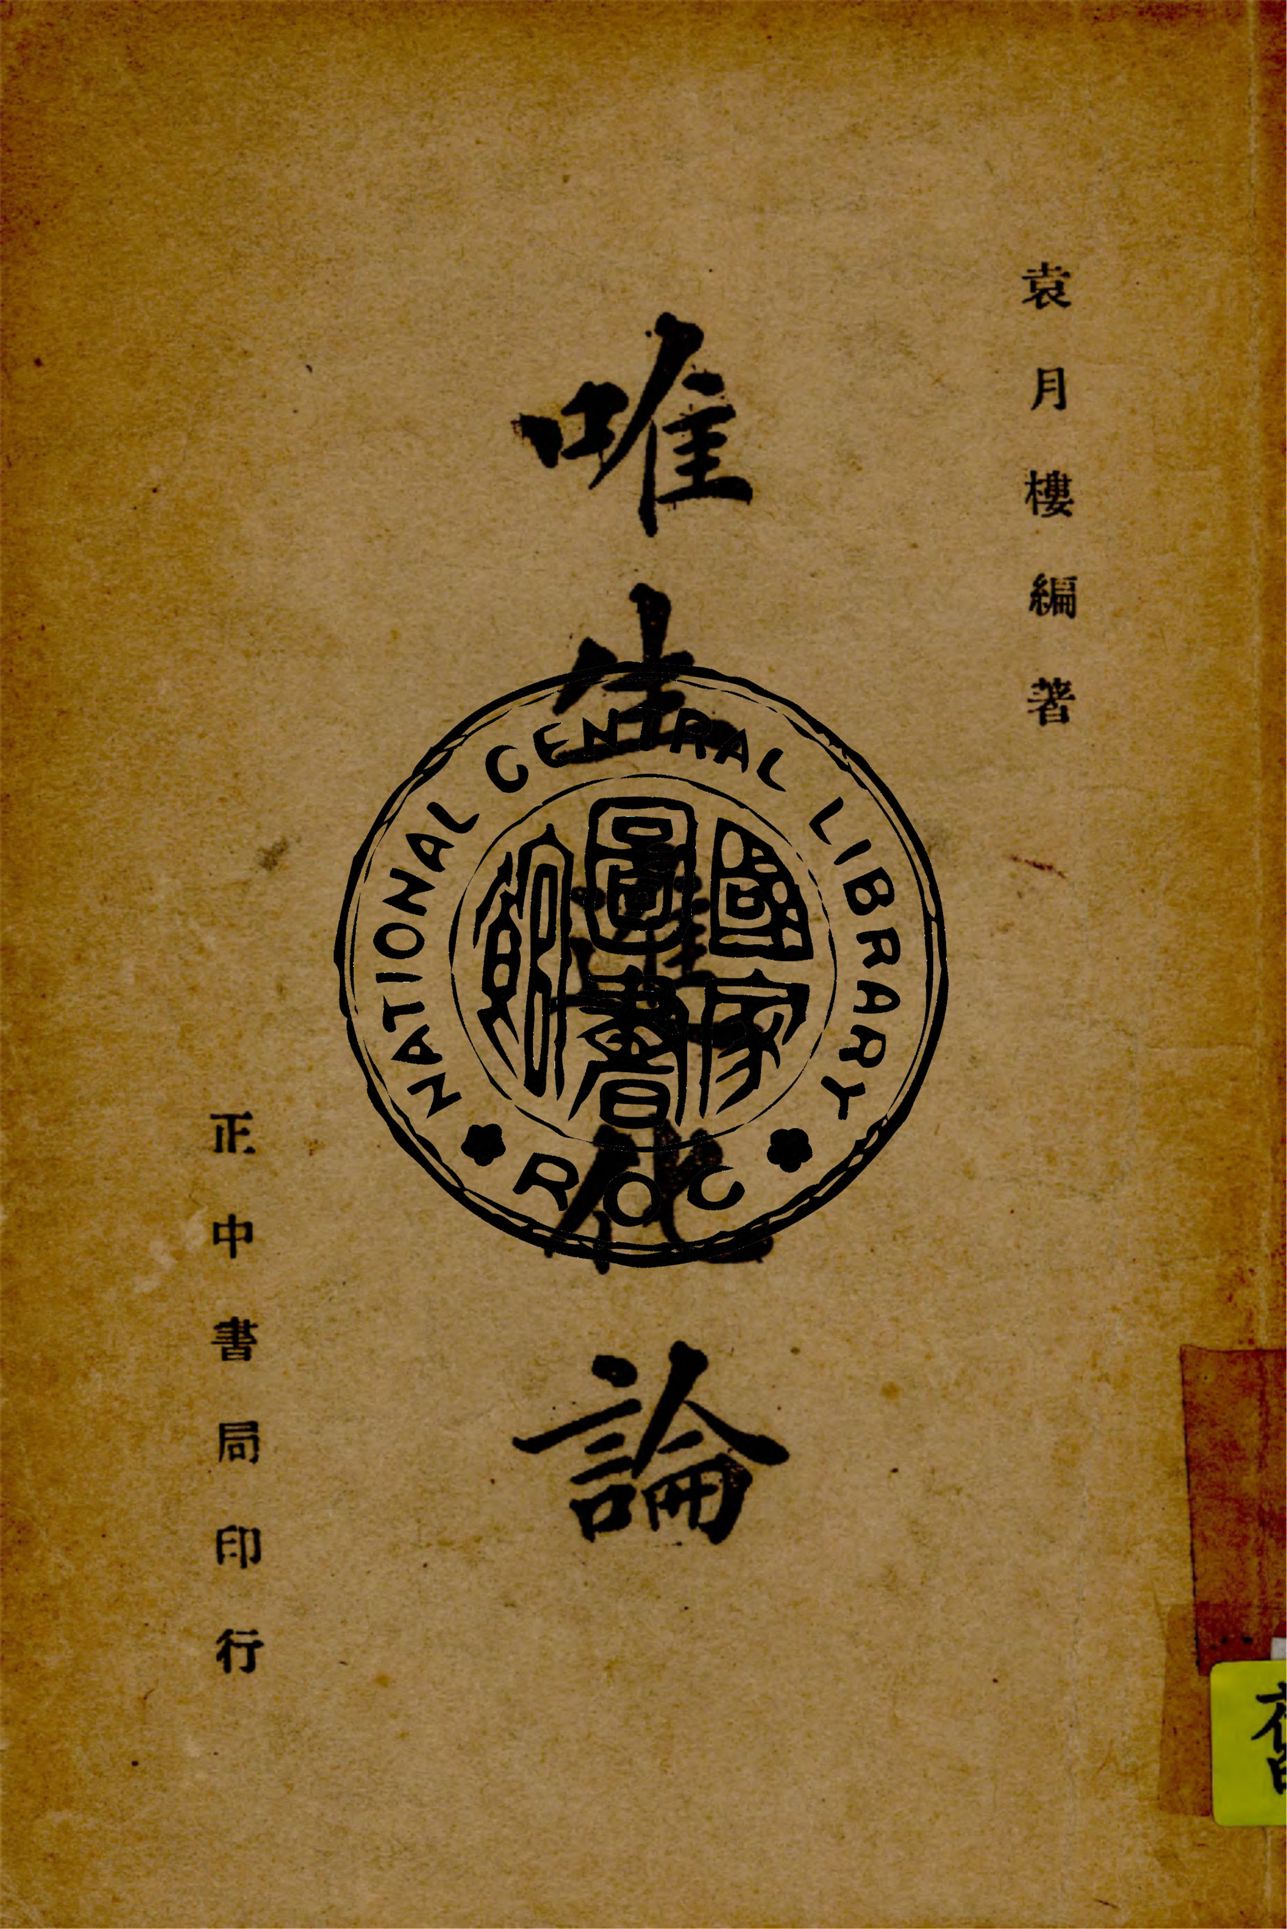 袁月樓編著
唯生進化論
正中書局印行
NATIONAL CENTRAL LIBRARY
ROC
國家
圖書
館